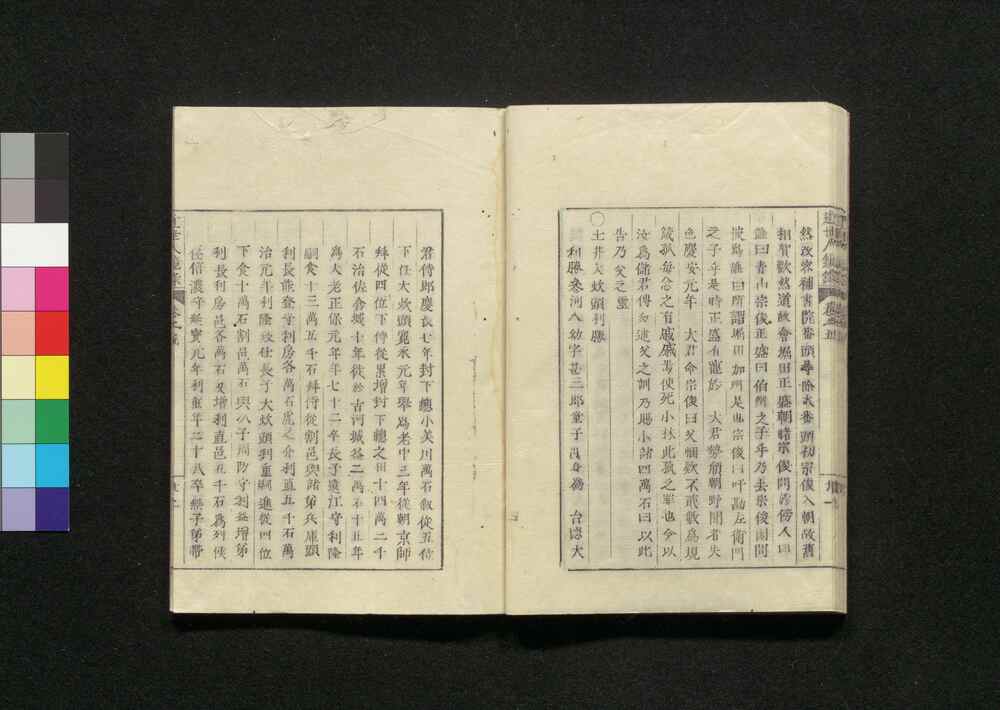 然改家補書院番頭尋除大番頭初宗俊入朝故舊
相賀歡然道故會堀田正盛朝謁宗俊問諸傍人曰
誰曰青山宗俊正盛曰伯州之子乎乃去宗俊因問
彼爲誰曰所謂堀田加州是也宗俊曰吁勘左衛門
之子乎是時正盛有寵於 大君勢傾朝野聞者失
色慶安元年 大君命宗俊曰父
汝爲儲君傅 述父之訓乃賜小諸四萬石曰以此
告乃父之靈
〇土井大炊頭利勝
利勝參河人幼字甚三郎童子 身 台德大
君侍郎慶長七年封下總小美川萬石叙從五位
下任大炊頭寬永元年擧爲老中三年從朝京師
拜從四位下侍從累增封下總之 十四萬二千
石治佐倉城十年徙於古河城益二萬石十五年
爲大老正保元年年七十二卒長子遠江守利隆
嗣食十三萬五千石拜侍從割邑與諸弟兵庫頭
利長能登守利房各萬石虎之介利直五千石萬
治元年利隆致仕長子大炊頭利重嗣進從四位
下食十萬石割邑萬石與 子周防守利益增弟
利長利房邑各萬石又增利直邑五千石爲列侯
延寶元年利重年二十 卒無子弟帶